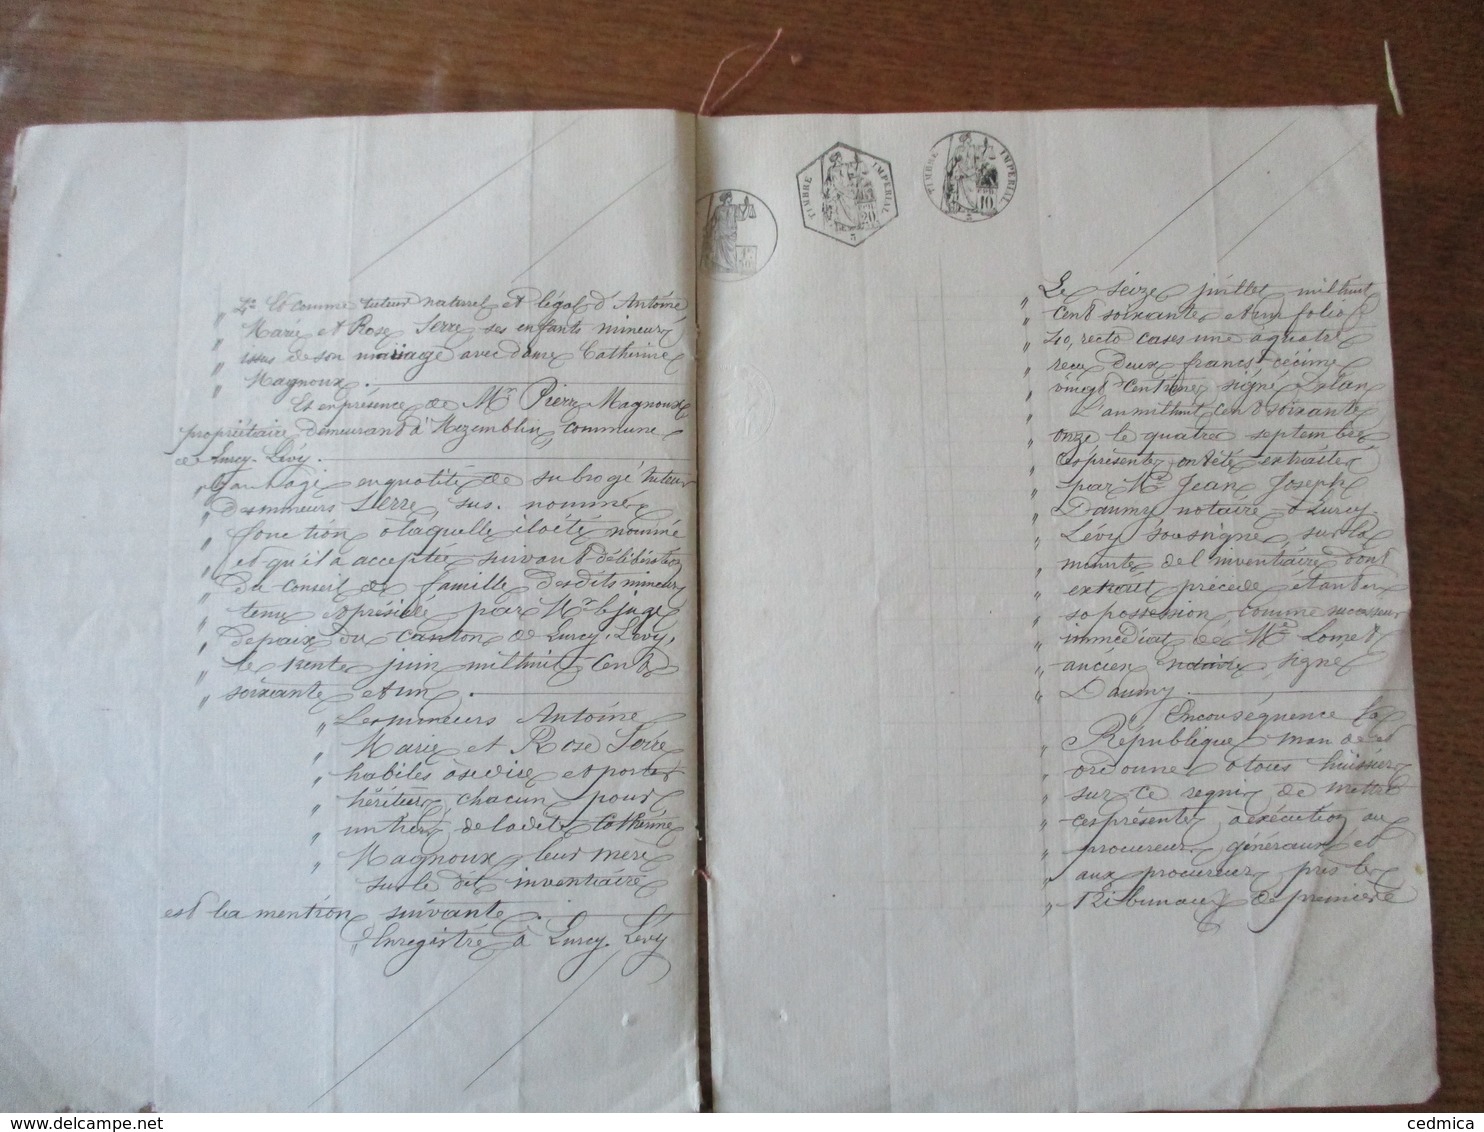 „ 2° Et comme tuteur naturel et légal d'Antoine
„ Marie et Rose Serre ses enfants mineurs
„ issus de son mariage avec dame Catherine
„ Magnoux.
Et en présence de Mr Pierre Magnoux
propriétaire, demeurant à Mezemblin, commune
de Lurcy-Lévy.
„ en qualité de subrogé tuteur
„ des mineurs Serre, sus-nommés
„ fonction à laquelle il a été nommé
„ et qu'il a acceptée suivant délibération
„ du conseil de famille desdits mineurs
„ tenu et présidé par Mr le juge
„ de paix du canton de Lurcy-Lévy,
„ le trente juin mil huit cent
„ soixante et un.
„ Les mineurs Antoine
„ Marie et Rose Serre
„ habiles à se dire et porter
„ héritiers, chacun pour
„ un tiers, de ladite Catherine
„ Magnoux leur mère
sur le dit inventaire
est la mention suivante.
„ Enregistré à Lurcy-Lévy
TIMBRE IMPERIAL
20
5
TIMBRE IMPERIAL
10
„ Le seize juillet mil huit
„ cent soixante et un folio
„ 40, recto cases une à quatre
„ reçu deux francs décime
„ vingt centimes, signé
„ L'an mil huit cent soixante
„ onze le quatre septembre
„ ces présentes ont été extraites
„ par Me Jean Joseph
„ Daumy notaire à Lurcy
„ Lévy soussigné, sur la
„ minute de l'inventaire dont
„ extrait précède étant en
„ sa possession, comme successeur
„ immédiat de Me Lomet
„ ancien notaire, signé
„ Daumy.
„ En conséquence la
„ République mande et
„ ordonne à tous huissiers
„ sur ce requis de mettre
„ ces présentes à exécution, aux
„ procureurs généraux et
„ aux procureurs près les
„ Tribunaux de première
cedmica